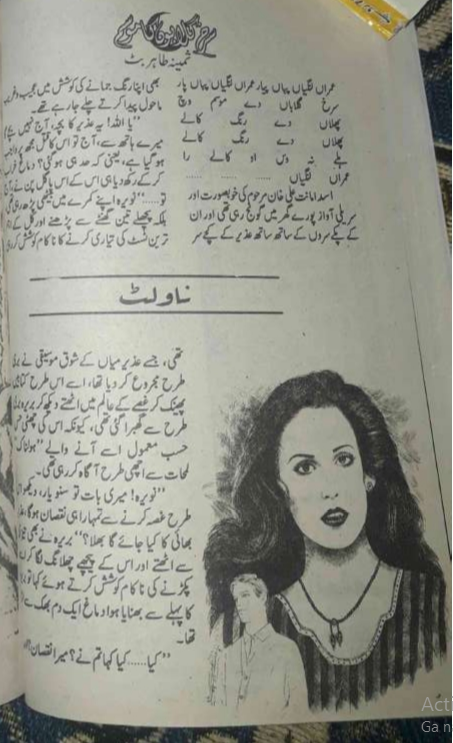 سرخ گلابوں کا موسم
ثمینہ طاہر بٹ
عمراں لنگیاں پباں پار عمراں لنگیاں پباں پار
سرخ گلاباں دے موسم وچ
پھلاں دے رنگ کالے
پھلاں دے رنگ کالے
عمراں لنگیاں
اسد امانت علی خان مرحوم کی خوبصورت اور
سریلی آواز پورے گھر میں گونج رہی تھی اور ان
کے پکے سروں کے ساتھ ساتھ عذیر کے کچے سر
بھی اپنا رنگ جمانے کی کوشش میں عجیب و غریب
ماحول پیدا کرتے چلے جا رہے تھے۔
"یا اللہ! یہ عذیر کا بچہ، آج نہیں بچے گا
میرے ہاتھ سے، آج تو اس کا قتل مجھ پر واجب
ہو گیا ہے، یعنی کہ حد ہی ہو گئی؟ دماغ خراب
کر کے رکھ دیا ہی اس کے اس پاگل پن نے آج
تو......" نویرہ اپنے کمرے میں بیٹھی پڑھ رہی تھی
بلکہ پچھلے تین گھنٹے سے پڑھنے اور کل کے
ترین ٹسٹ کی تیاری کرنے کا ناکام کوشش کر رہی
ناولٹ
تھی، جسے عذیر میاں کے شوق موسیقی نے بری
طرح مجروع کر دیا تھا، اسے اس طرح کتابیں
پھینک کر غصے کے عالم میں اٹھتے دیکھ کر بریرہ
طرح سے گھبرا گئی تھی، کیونکہ اس کی چھٹی حس
حسب معمول اسے آنے والے "ہولناک"
لمحات سے اچھی طرح آگاہ کر رہی تھی۔
"نویرہ! میری بات تو سنو یار، دیکھو اس
طرح غصہ کرنے سے تمہارا ہی نقصان ہو گا،
بھائی کا کیا جائے گا بھلا؟" بریرہ نے بھی
سے اٹھتے اور اس کے پیچھے چھلانگ لگا کر
پکڑنے کی ناکام کوشش کرتے ہوئے کہا تو
کا پہلے سے بھنایا ہوا دماغ ایک دم بھک سے
تھا۔
"کیا...... کیا کہا تم نے؟ میرا نقصان؟
Acti
Ga n